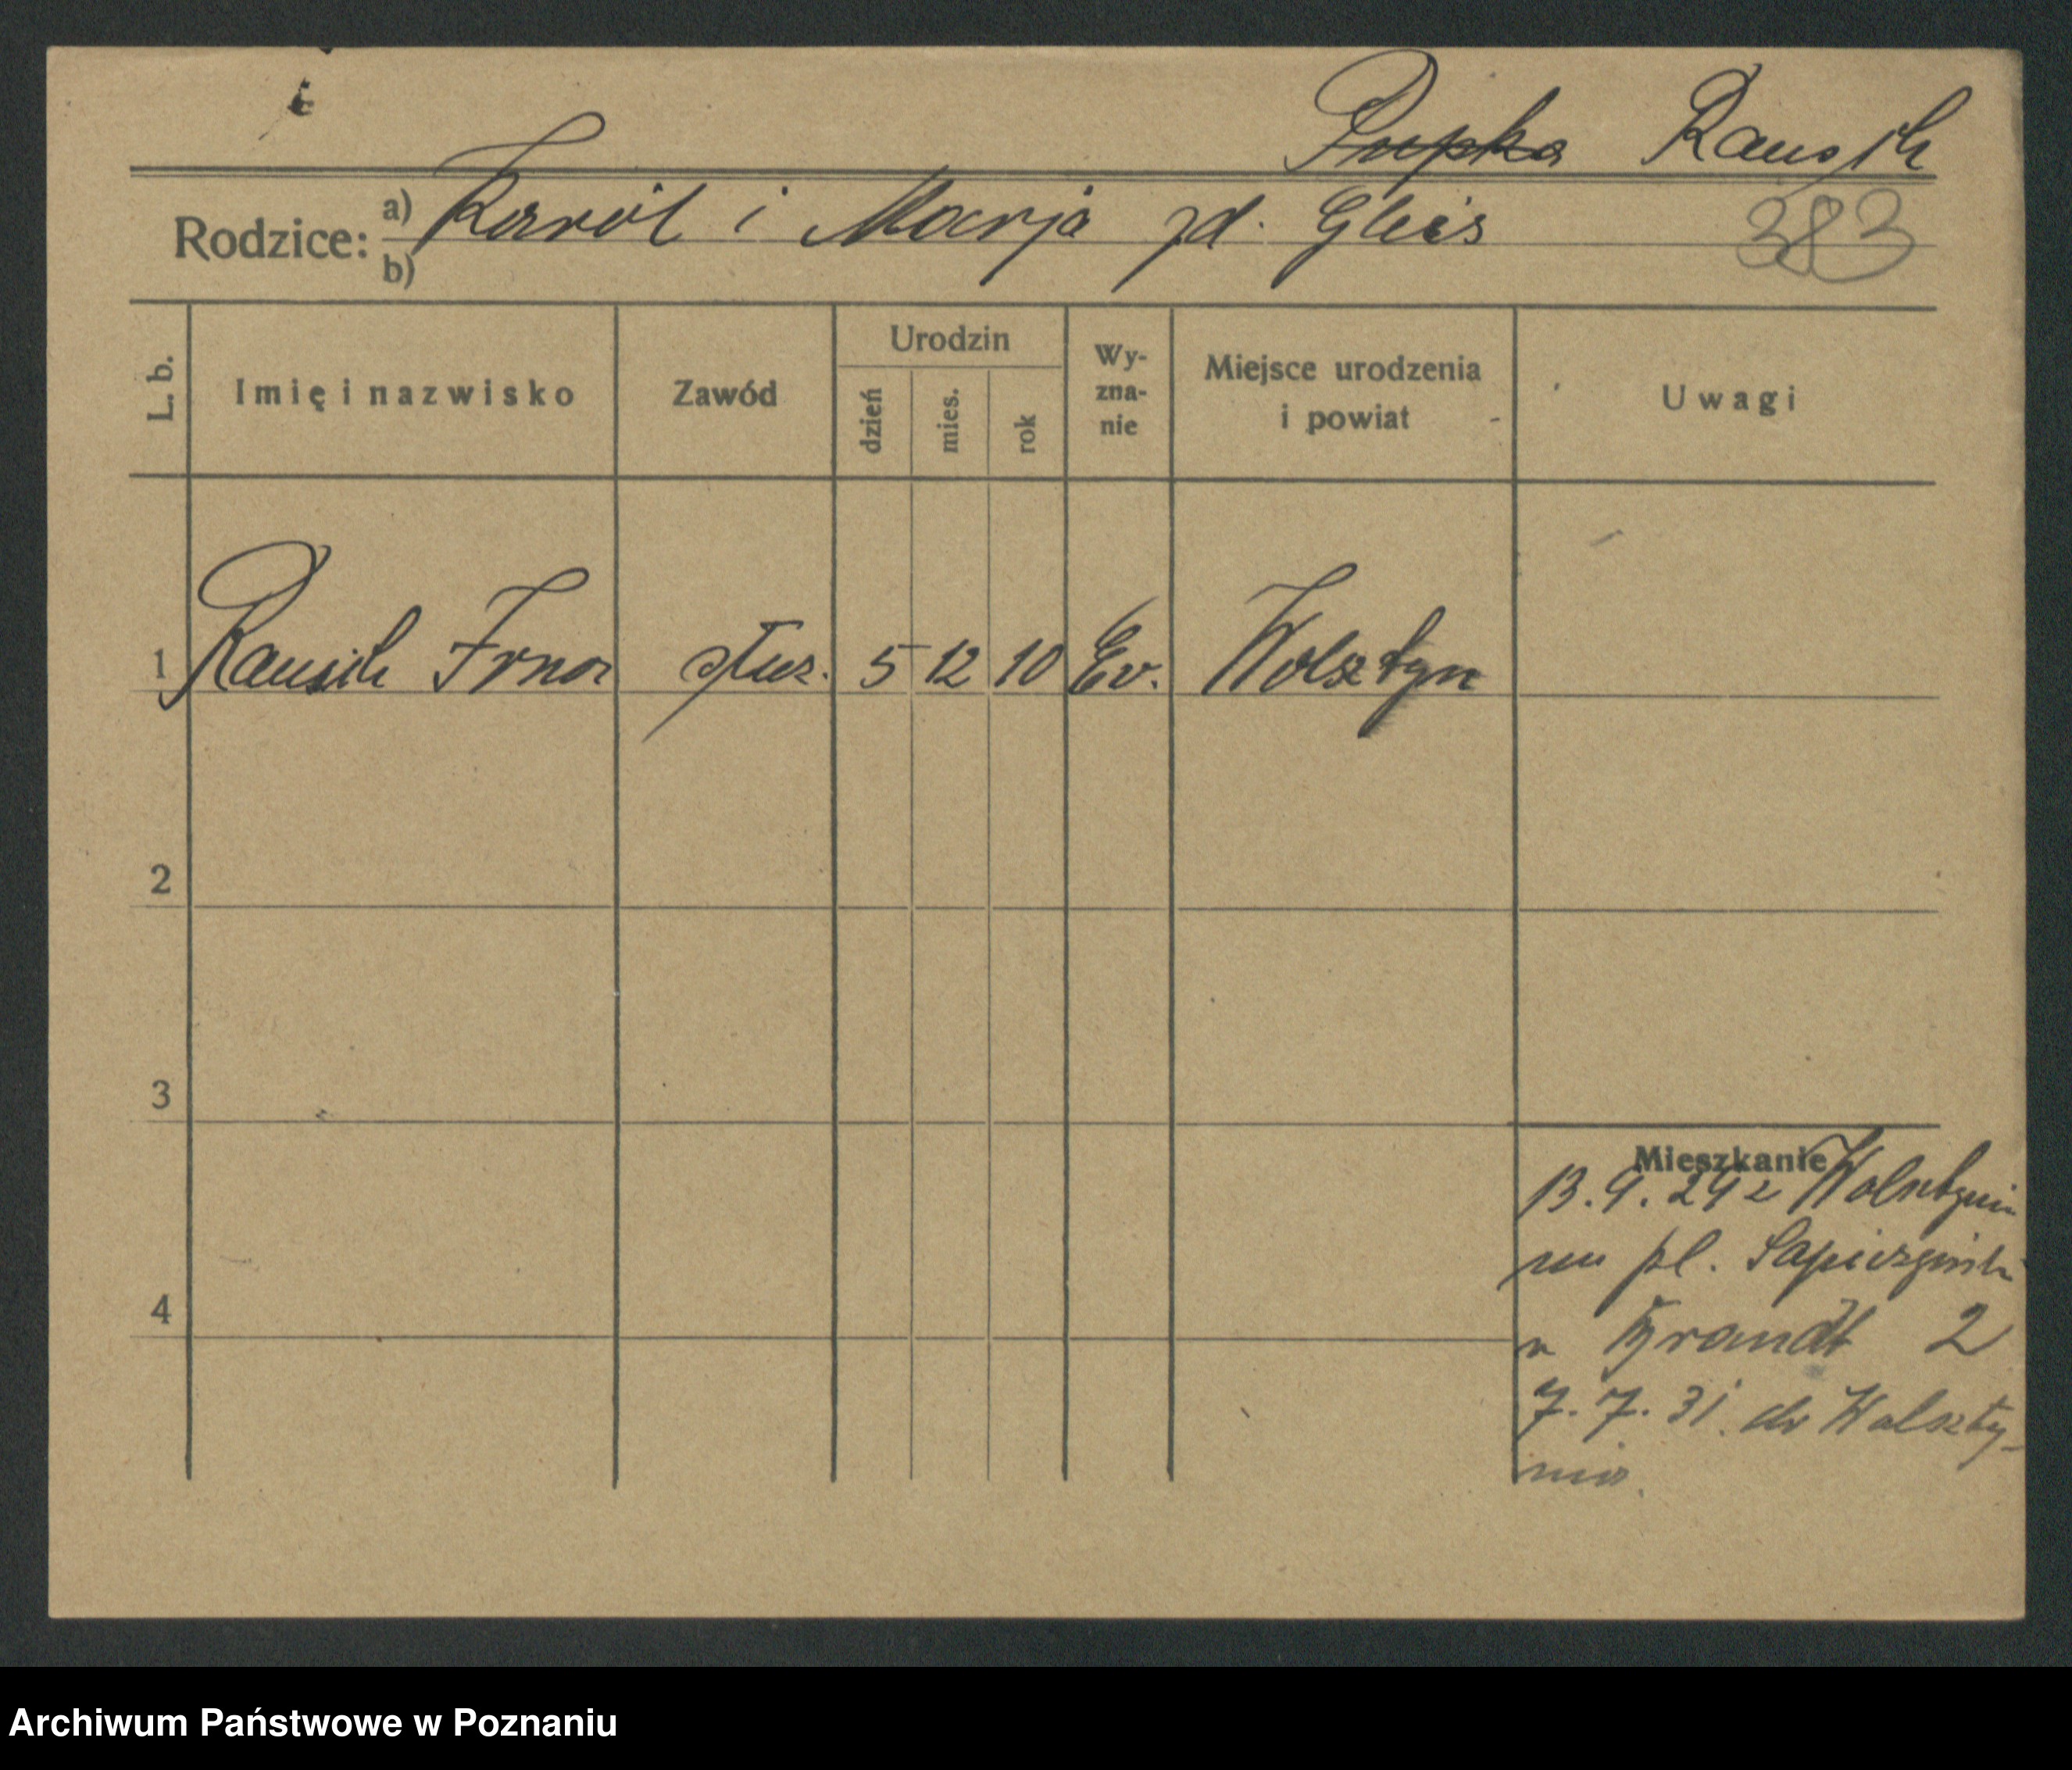 Pupka Rausch
Rodzice: a) Karól i Marja zd. Gleis 383
b)
L. b. Imię i nazwisko Zawód Urodzin dzień mies. rok Wy-zna-nie Miejsce urodzenia i powiat Uwagi
1 Rausch Erna służ. 5 12 10 Ew. Wolsztyn
2
3
Mieszkanie
13.9.29 z Wolsztynia
na pl. Sapieżyński
4
u Brandt 2
7.7.31. do Wolszty-
nia.
Archiwum Państwowe w Poznaniu